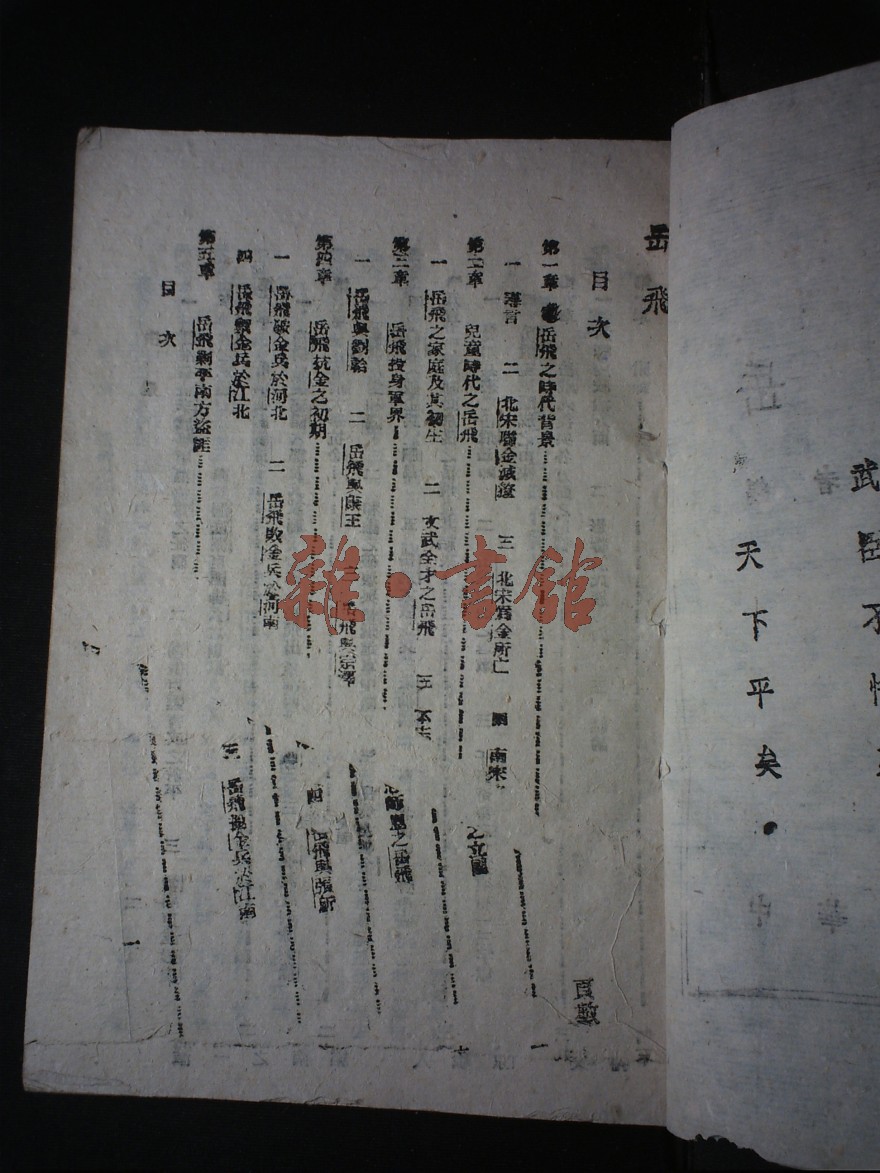 武
天下平矣。
岳飛
目次
頁數
第一章 岳飛之時代背景……………一
一 導言 二 北宋聯金滅遼 三 北宋爲金所亡 四 南宋之立國
第二章 兒童時代之岳飛……………十
一 岳飛之家庭及其初生 二 文武全才之岳飛 三 不忘師恩之岳飛
第三章 岳飛投身軍界……………
一 岳飛與劉韐 二 岳飛與康王 三 岳飛與宗澤 四 岳飛與張所
第四章 岳飛抗金之初期……………
一 岳飛破金兵於河北 二 岳飛敗金兵於河南 三 岳飛挫金兵於江南
四 岳飛禦金兵於江北
第五章 岳飛剿平南方盜匪……………
目次 一
雜·書館